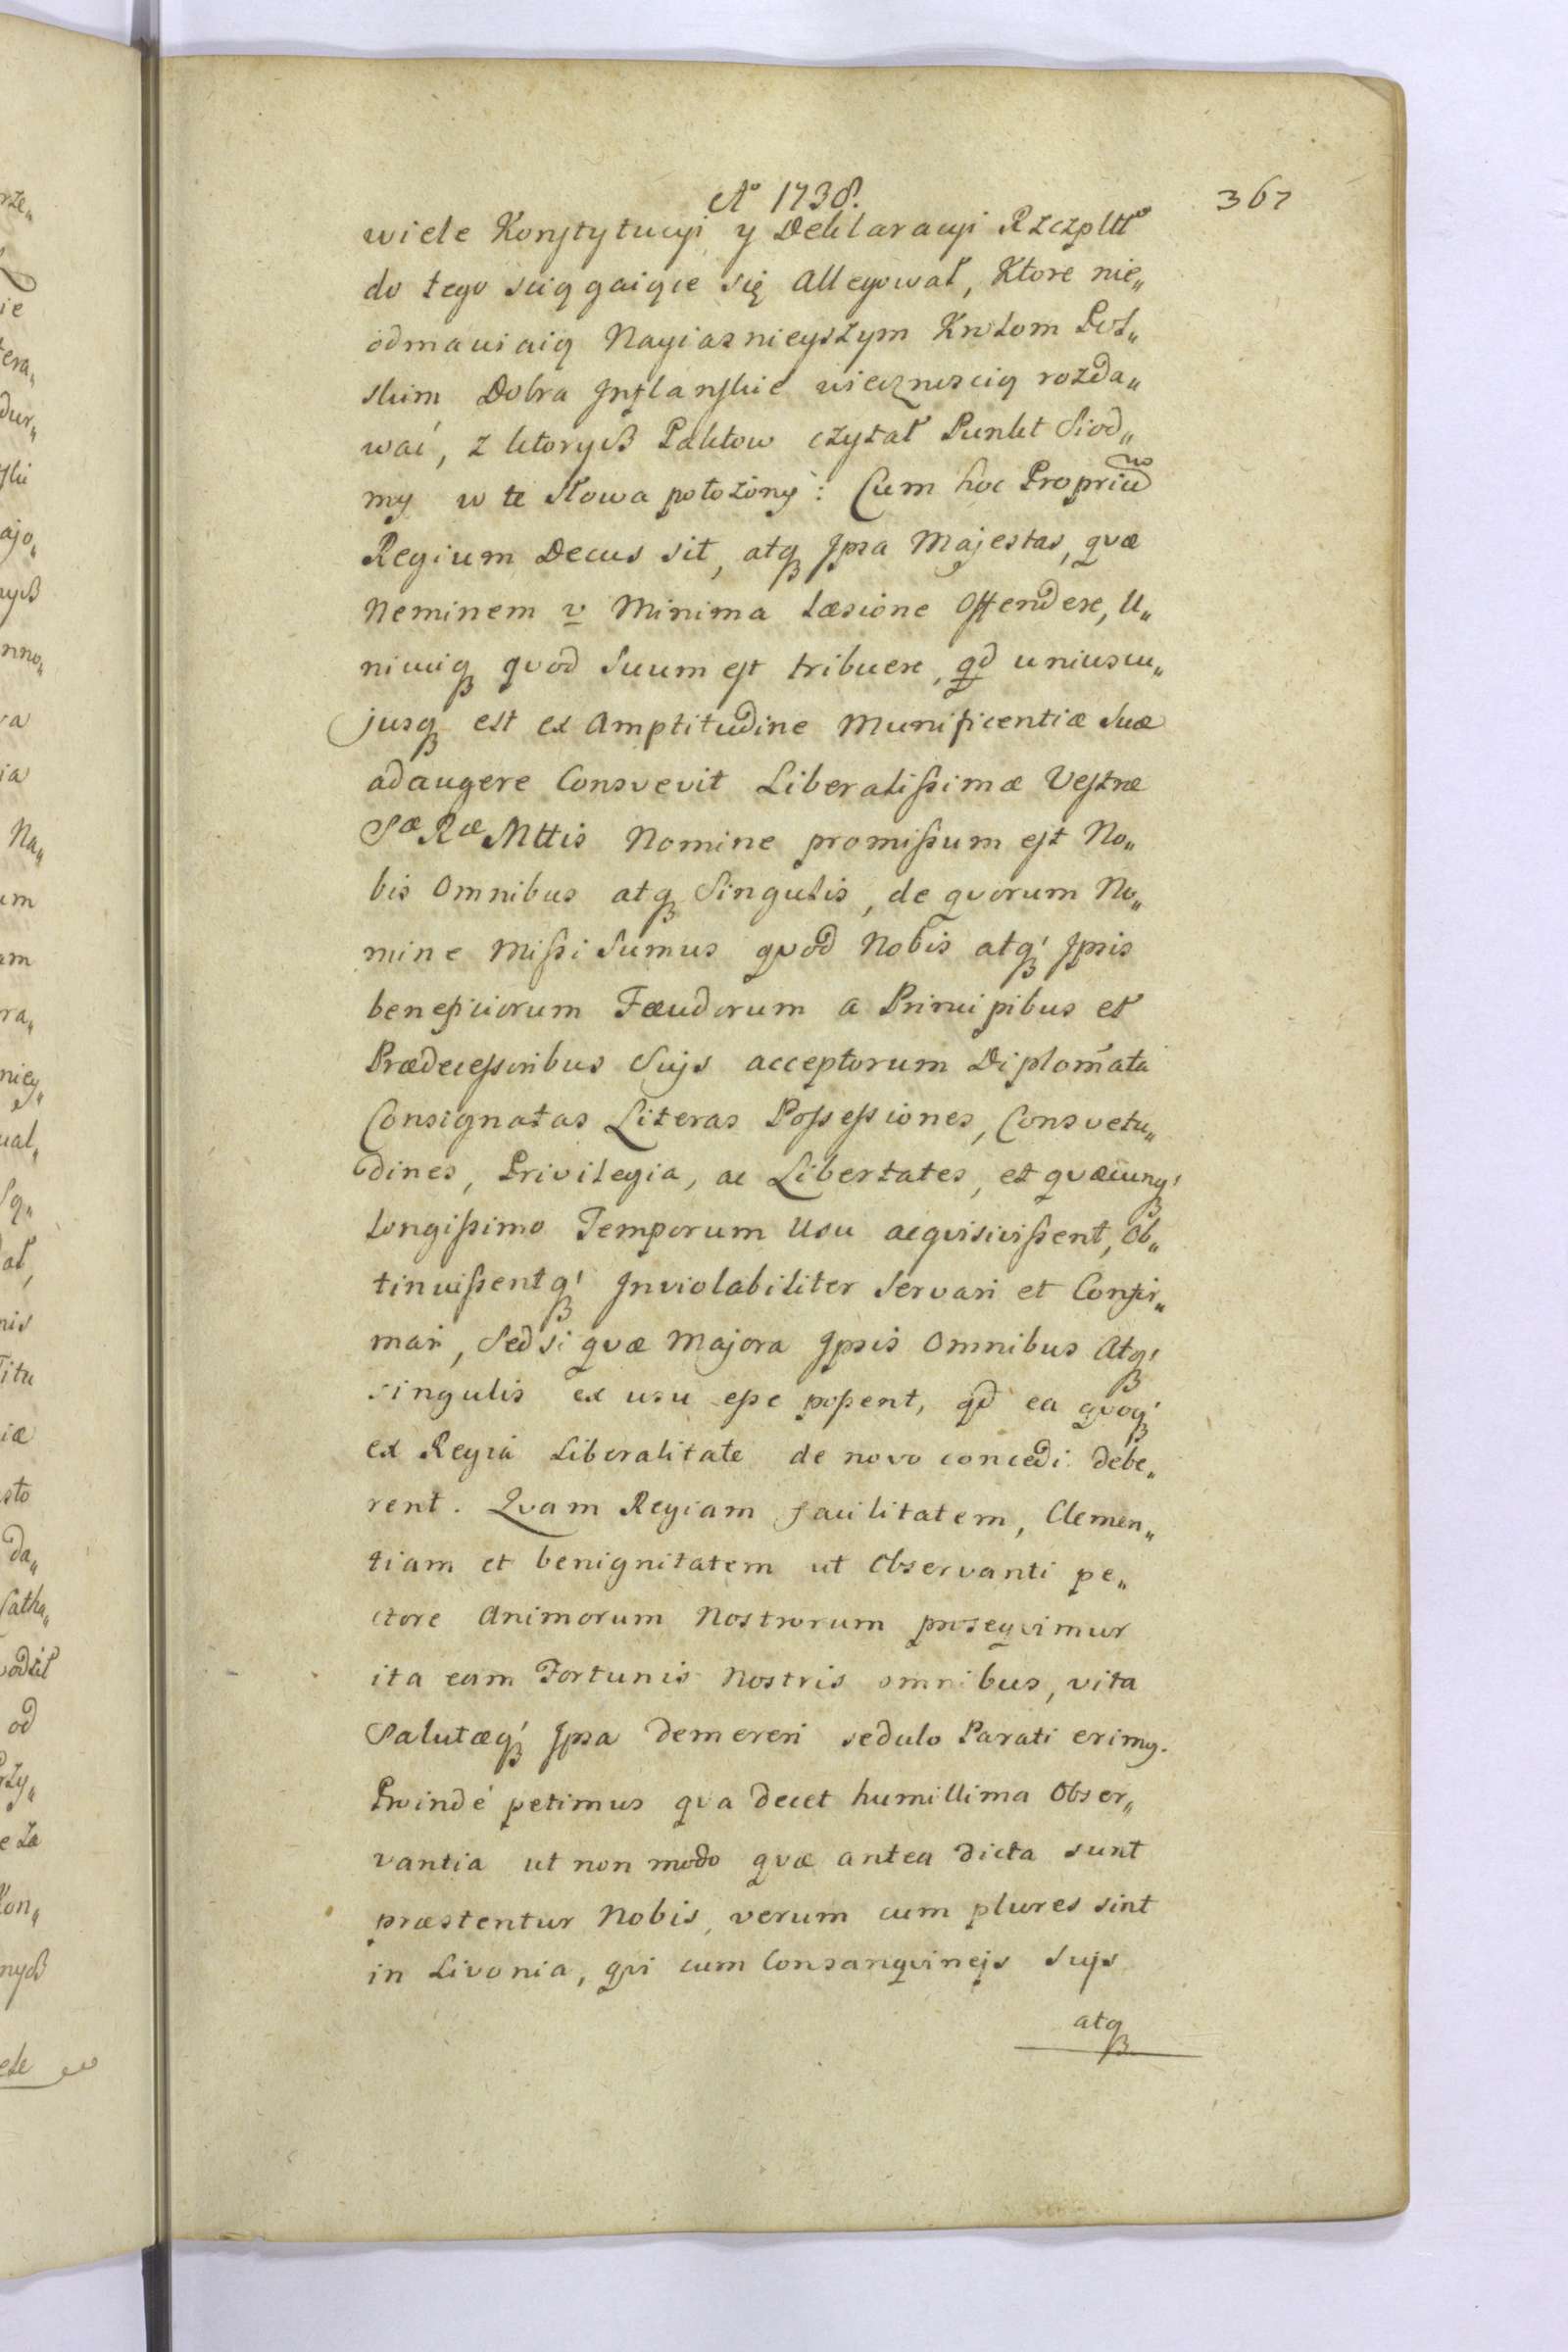 Aº 1738.
367
wiele Konstytucyi y Deklaracyi Rzczpltt
do tego sciągaiące się Allegował, Ktore nie„
odmawiaią Nayiasnieyszym Krolom Pol„
skim Dobra Inflanskie wiecznoscią rozda„
wać, z ktorych Paktow czytał Punkt Siod„
my w te słowa położony: Cum hoc Propriũ
Regium Decus sit, atq Ipsa Majestas, quæ
Neminem v Minima læsione Offendere, U„
nicuiq quod Suum est tribuere, qd uniuscu„
jusq est ex Amptitudine Munificentiæ Suæ
adaugere Consvevit Liberalissimæ Vestræ
Sæ Ræ Mttis Nomine promissum est No„
bis Omnibus atq Singulis, de quorum No„
mine Missi Sumus quod Nobis atq' Ipsis
beneficiorum Fæudorum a Principibus et
Prædecessoribus Sujs acceptorum Diplom̃ata
Consignatas Literas Possessiones, Consvetu„
dines, Privilegia, ac Libertates, et quæcunq'
Longissimo Temporum Usu acqvisivissent, Ob„
tinuissentq' Inviolabiliter Servari et Confir„
mari, Sed si quæ Majora Ipsis Omnibus Atq'
singulis ex usu esse possent, qd ea quoq'
ex Regia Liberalitate de novo concedi debe„
rent. Quam Regiam facilitatem, Clemen„
tiam et benignitatem ut Observanti pe„
ctore Animorum Nostrorum prosequimur
ita eam Fortunis Nostris omnibus, vita
Salutæq' Ipsa demereri sedulo Parati erimg.
Proindé petimus qva decet humillima Obser„
vantia ut non modo quæ antea dicta sunt
præstentur Nobis, verum cum plures sint
in Livonia, qvi cum Consangvinejs Sujs
atq